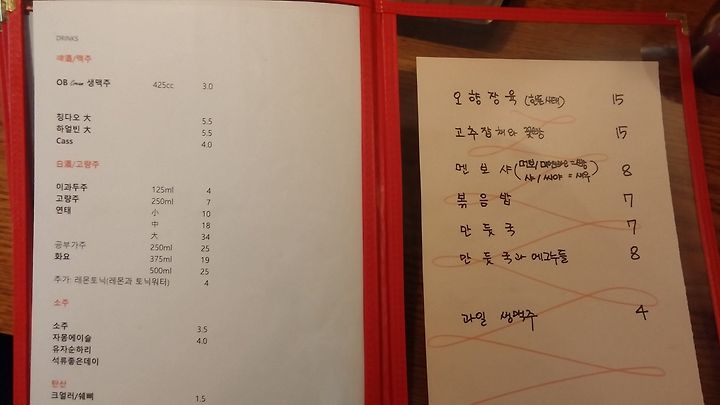 DRINKS
啤酒/맥주
OB 생맥주 425cc 3.0
칭다오 大 5.5
하얼빈 大 5.5
Cass 4.0
白酒/고량주
이과두주 125ml 4
고량주 250ml 7
연태 小 10
中 18
大 34
공부가주 250ml 25
화요 375ml 19
500ml 25
추가: 레몬토닉(레몬과 토닉워터) 4
소주
소주 3.5
자몽에이슬 4.0
유자순하리
석류좋은데이
탄산
크얼러/쉐삐 1.5
오향장육 15
고추잡채와 꽃빵 15
멘보샤 8
볶음밥 7
만둣국 7
만둣국과 에그누들 8
과일 생맥주 4